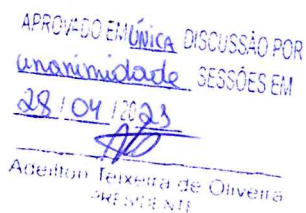 APROVADO EM ÚNICA DISCUSSÃO POR
unanimidade SESSÕES EM
28 / 04 / 2023
Adeilton Teixeira de Oliveira
PRESIDENTE